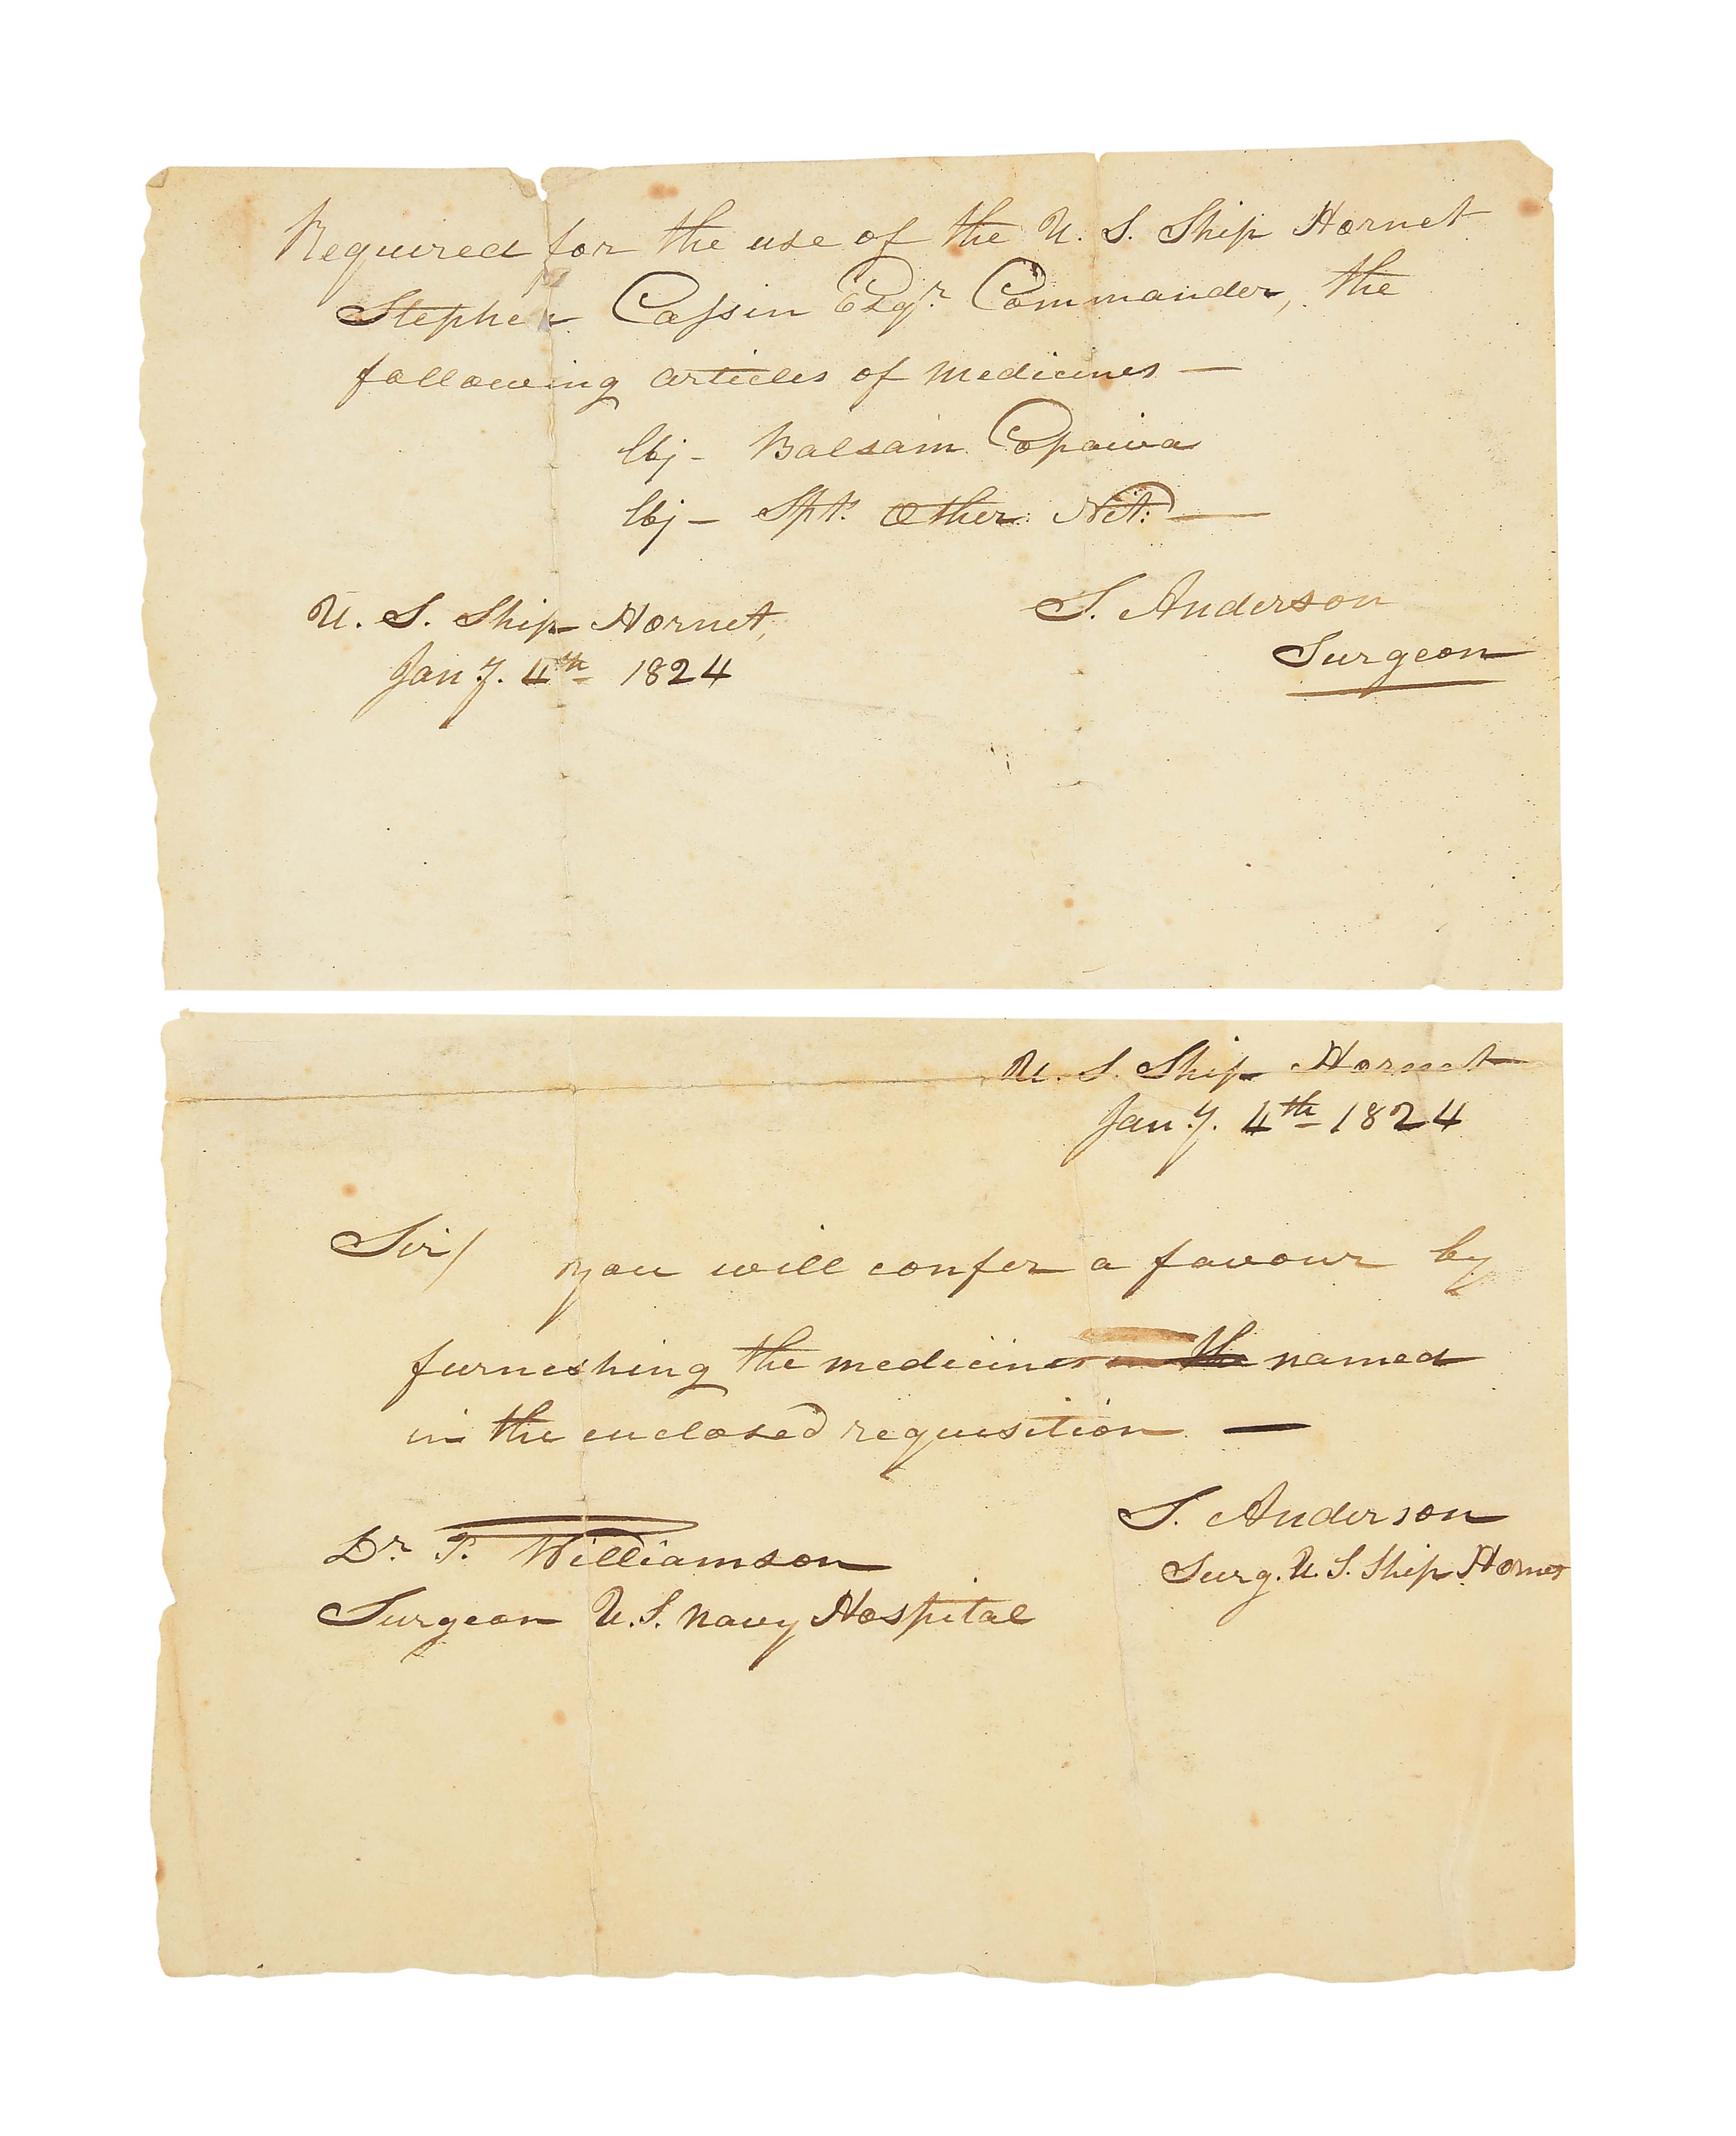 Required for the use of the U. S. Ship Hornet
Stephen Cassin Esqr. Commander, the
following articles of medicines —
lbj - Balsam Copaiva
lbj - Spts. Æther: Nit: —
S. Anderson
Surgeon
U. S. Ship Hornet,
Jany. 4th 1824
U. S. Ship Hornet
Jany. 4th 1824
Sir/ you will confer a favour by
furnishing the medicines in the named
in the enclosed requisition —
S. Anderson
Surg. U. S. Ship Hornet
Dr. T. Williamson
Surgeon U. S. Navy Hospital